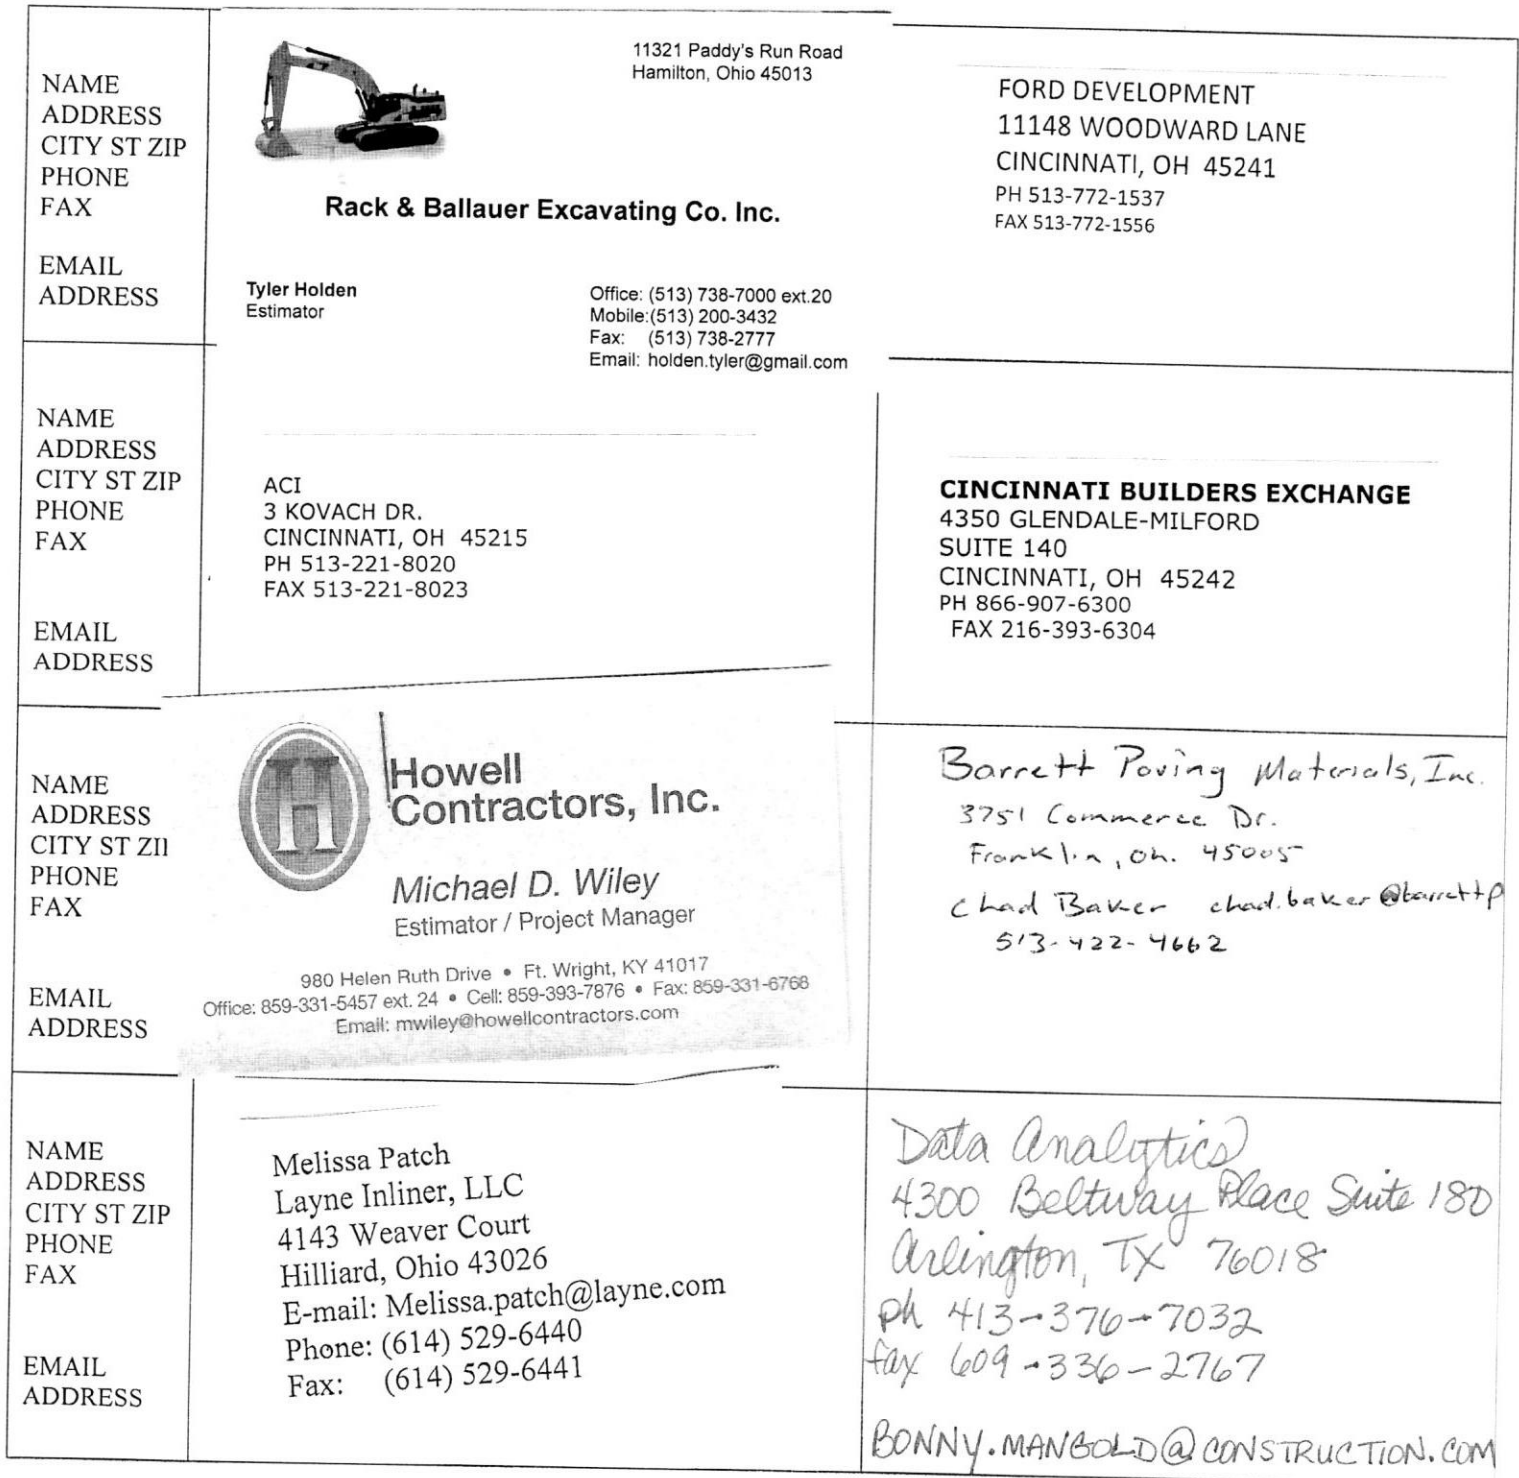 NAME
ADDRESS
CITY ST ZIP
PHONE
FAX
EMAIL
ADDRESS
11321 Paddy's Run Road
Hamilton, Ohio 45013
Rack & Ballauer Excavating Co. Inc.
Tyler Holden
Estimator
Office: (513) 738-7000 ext.20
Mobile:(513) 200-3432
Fax: (513) 738-2777
Email: holden.tyler@gmail.com
FORD DEVELOPMENT
11148 WOODWARD LANE
CINCINNATI, OH 45241
PH 513-772-1537
FAX 513-772-1556
NAME
ADDRESS
CITY ST ZIP
PHONE
FAX
EMAIL
ADDRESS
ACI
3 KOVACH DR.
CINCINNATI, OH 45215
PH 513-221-8020
FAX 513-221-8023
CINCINNATI BUILDERS EXCHANGE
4350 GLENDALE-MILFORD
SUITE 140
CINCINNATI, OH 45242
PH 866-907-6300
FAX 216-393-6304
NAME
ADDRESS
CITY ST ZI
PHONE
FAX
EMAIL
ADDRESS
H
Howell
Contractors, Inc.
Michael D. Wiley
Estimator / Project Manager
980 Helen Ruth Drive • Ft. Wright, KY 41017
Office: 859-331-5457 ext. 24 • Cell: 859-393-7876 • Fax: 859-331-6768
Email: mwiley@howellcontractors.com
Barrett Paving Materials, Inc.
3751 Commerce Dr.
Franklin, Oh. 45005
Chad Baker chad.baker@barrettp
513-422-4662
NAME
ADDRESS
CITY ST ZIP
PHONE
FAX
EMAIL
ADDRESS
Melissa Patch
Layne Inliner, LLC
4143 Weaver Court
Hilliard, Ohio 43026
E-mail: Melissa.patch@layne.com
Phone: (614) 529-6440
Fax: (614) 529-6441
Data Analytics
4300 Beltway Place Suite 180
Arlington, TX 76018
ph 413-376-7032
fax 609-336-2767
BONNY.MANGOLD@CONSTRUCTION.COM